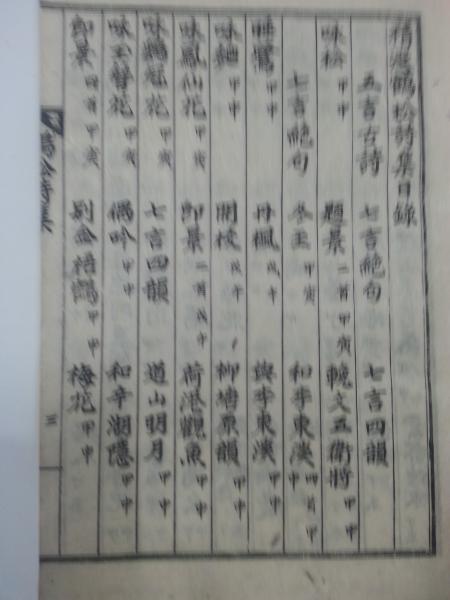 鶴松詩集目錄
五言古詩 七言絶句 七言四韻
咏松 甲申 題景 二首 甲寅 輓文五衛將 甲申
七言絶句 冬至 甲寅 和李東漢 四首 甲申
鷺 甲申 丹楓 戊午 與李東漢 甲申
咏 甲申 開校 戊午 柳塘原韻 甲申
咏鳳仙花 甲寅 即景 二首 戊午 荷港觀魚 甲申
咏鷄冠花 甲寅 七言四韻 道山明月 甲申
咏玉簪花 甲寅 偶吟 甲申 和辛湖隱 甲申
即景 四首 甲寅 別金梧 甲申 梅花 甲申
三